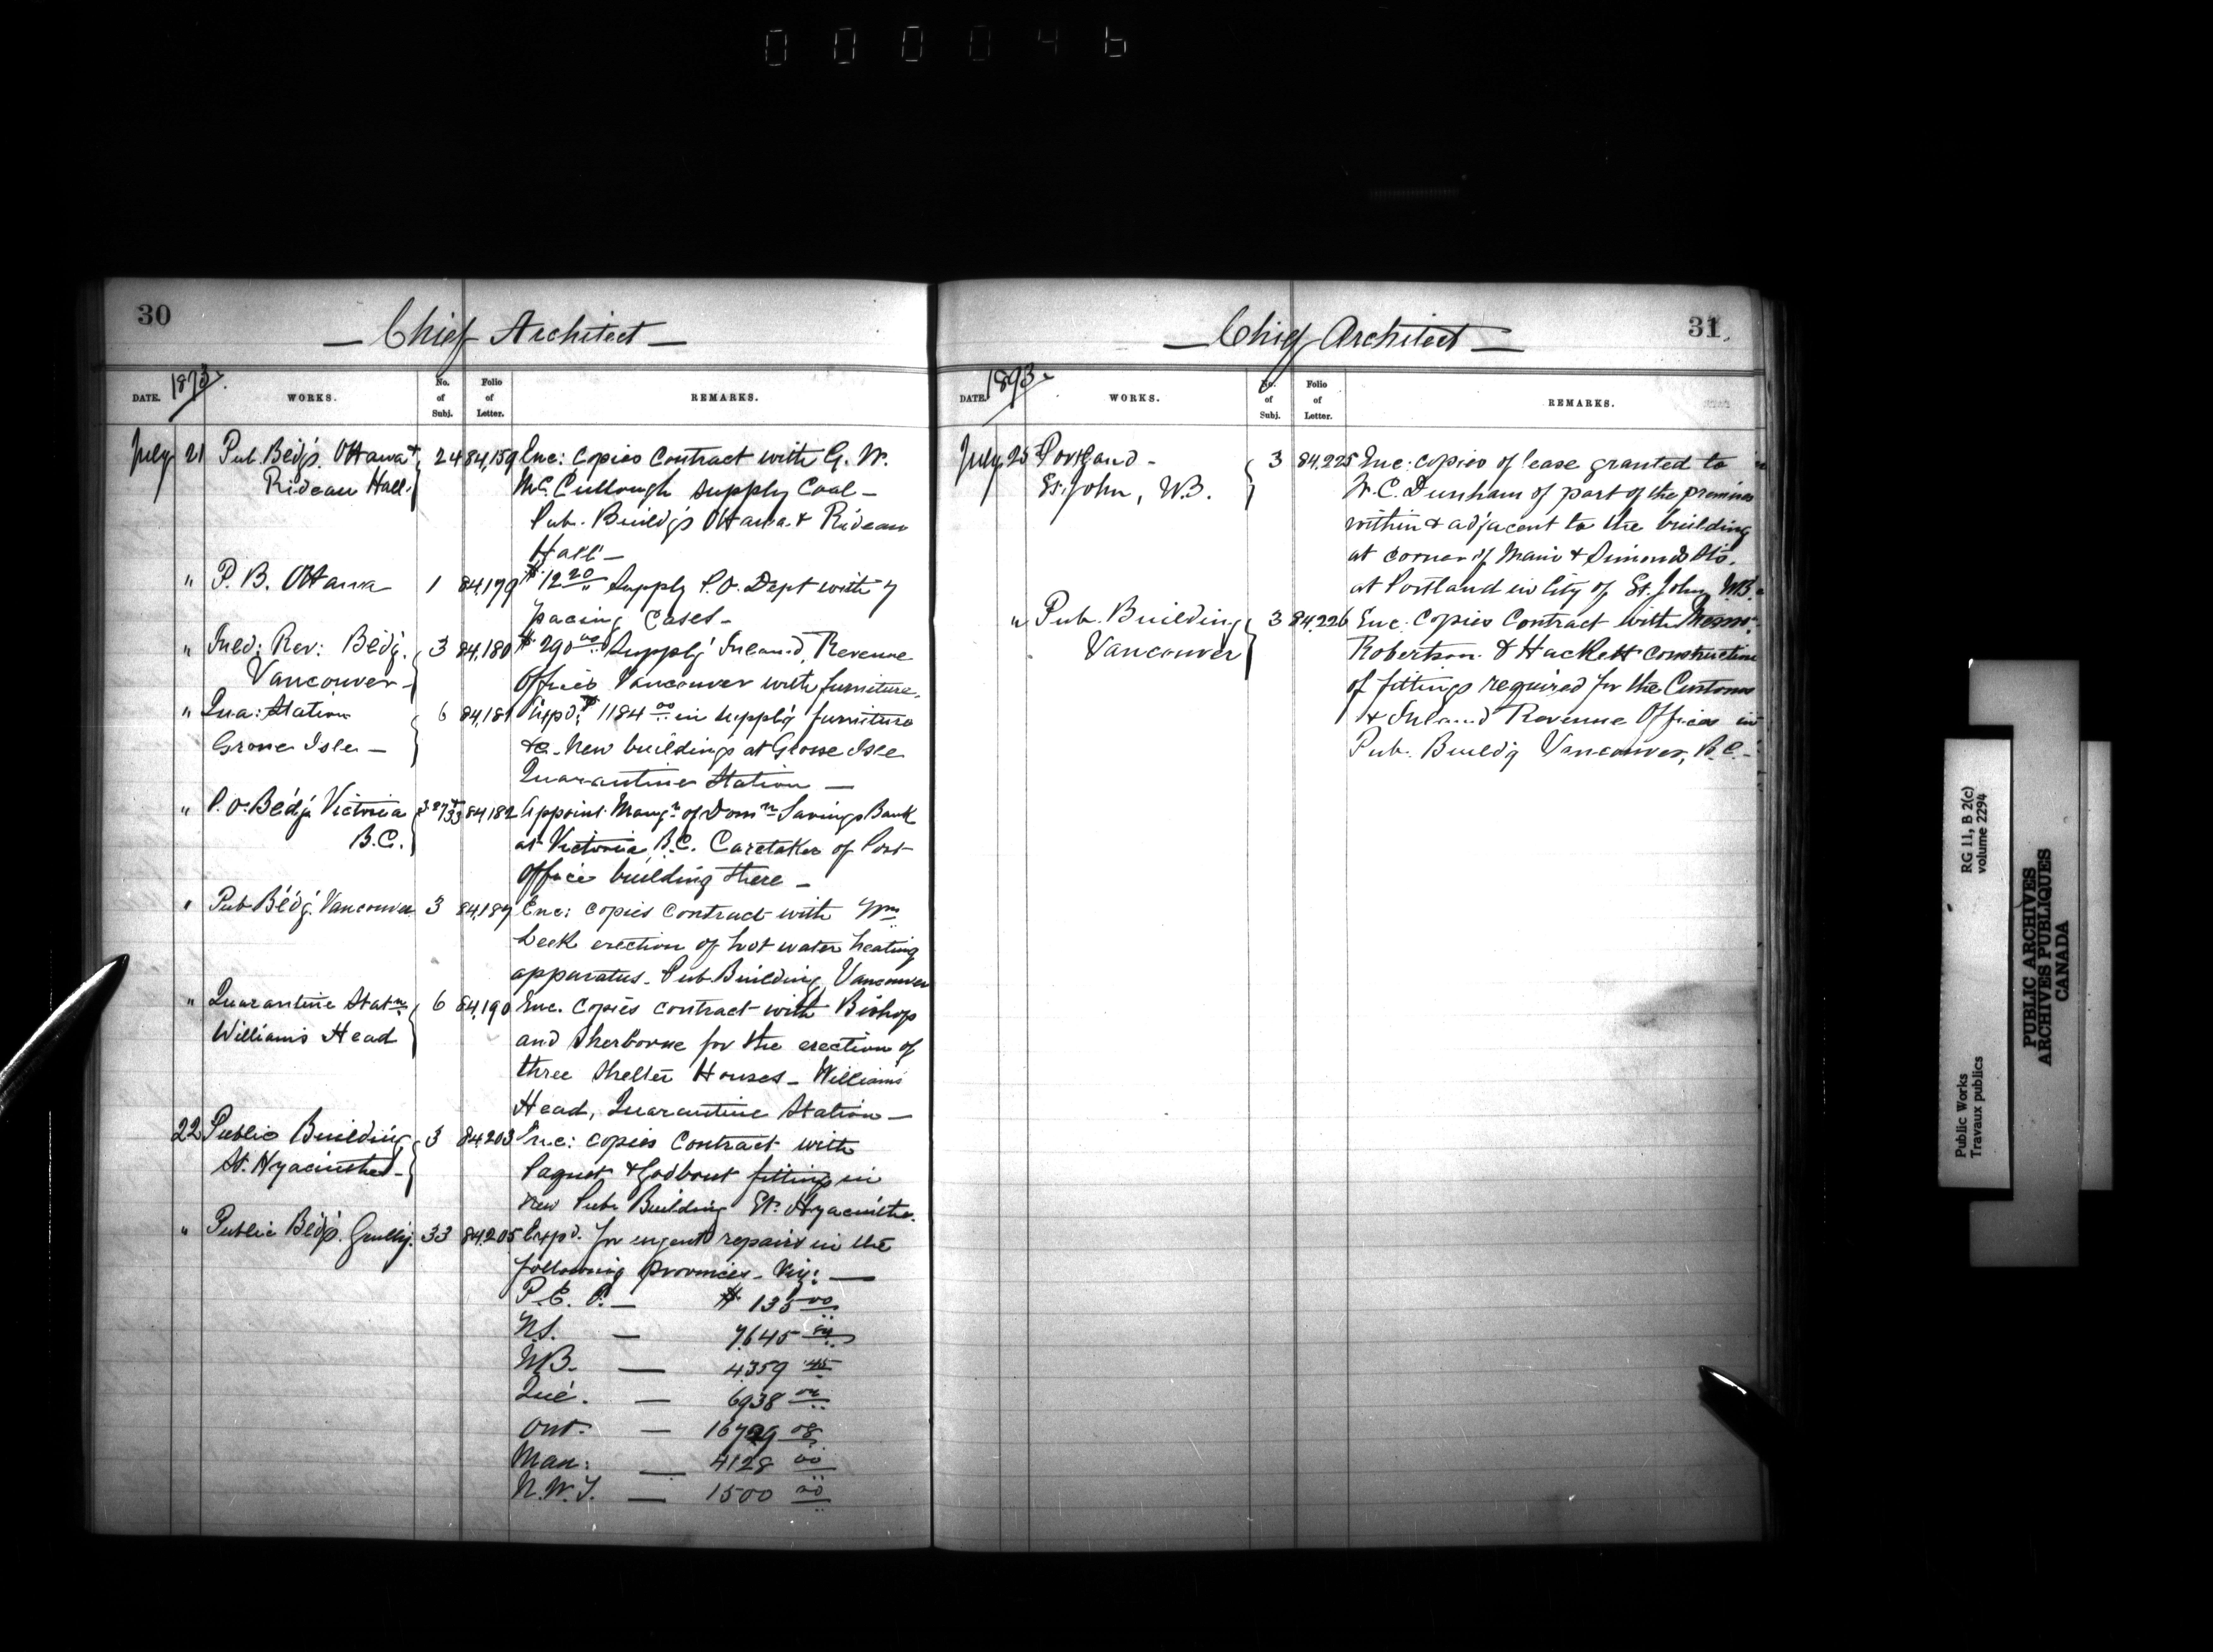 000046
30
— Chief Architect —
1893
DATE. WORKS. No. of Subj. Folio of Letter. REMARKS.
July 21 Pub. Bldgs. Ottawa & 24 84,159 Enc: copies contract with G. W.
Rideau Hall. McCullough supply Coal —
Pub. Buildgs Ottawa & Rideau
Hall —
" P. B. Ottawa 1 84,179 $12 20 Supply P.O. Dept with 7
pacing Cases —
" Inld: Rev: Bldg. 3 84,180 $290 00 Supplyg Inland Revenue
Vancouver — Offices Vancouver with furniture.
" Qua: Station 6 84,181 Expd. $1184 00 in supplyg furniture
Grosse Isle — &c. New buildings at Grosse Isle
Quarantine Station —
" P.O. Bldg Victoria 3.27 & 33 84,182 Appoint. Mangr of Domn Savings Bank
B.C. at Victoria, B.C. Caretaker of Post
Office building there —
" Pub Bldg. Vancouver 3 84,187 Enc: copies contract with Wm
Leek erection of hot water heating
apparatus. Pub. Building, Vancouver
" Quarantine Statn 6 84,190 Enc. Copies contract with Bishop
Williams Head and Sherborne for the erection of
three Shelter Houses — Williams
Head, Quarantine Station —
22 Public Building 3 84,203 Enc: copies Contract with
St. Hyacinthe — Paquet & Godbout fittings in
new Pub. Building St. Hyacinthe.
" Public Bldgs. Genlly. 33 84,205 Expd. for urgent repairs in the
following provinces — viz: —
P.E.I. — $ 135 00
N.S. — 7645
N.B. — 4359 45
Que. — 6938
Ont. — 16729 08
Man: — 4128 00
N.W.T. — 1500 00
31.
— Chief Architect —
1893
DATE. WORKS. No. of Subj. Folio of Letter. REMARKS.
July 25 Portland — 3 84,225 Enc: copies of lease granted to
St. John, N.B. W.C. Dunham of part of the premises
within & adjacent to the building
at corner of Main & Simonds Sts.
at Portland in City of St. John N.B.
" Pub. Building 3 84,226 Enc: Copies Contract with Messrs.
Vancouver Robertson & Hackett construction
of fittings required for the Customs
& Inland Revenue Offices in
Pub. Buildg Vancouver, B.C. —
RG 11, B 2(c)
volume 2294
Public Works
Travaux publics
PUBLIC ARCHIVES
ARCHIVES PUBLIQUES
CANADA